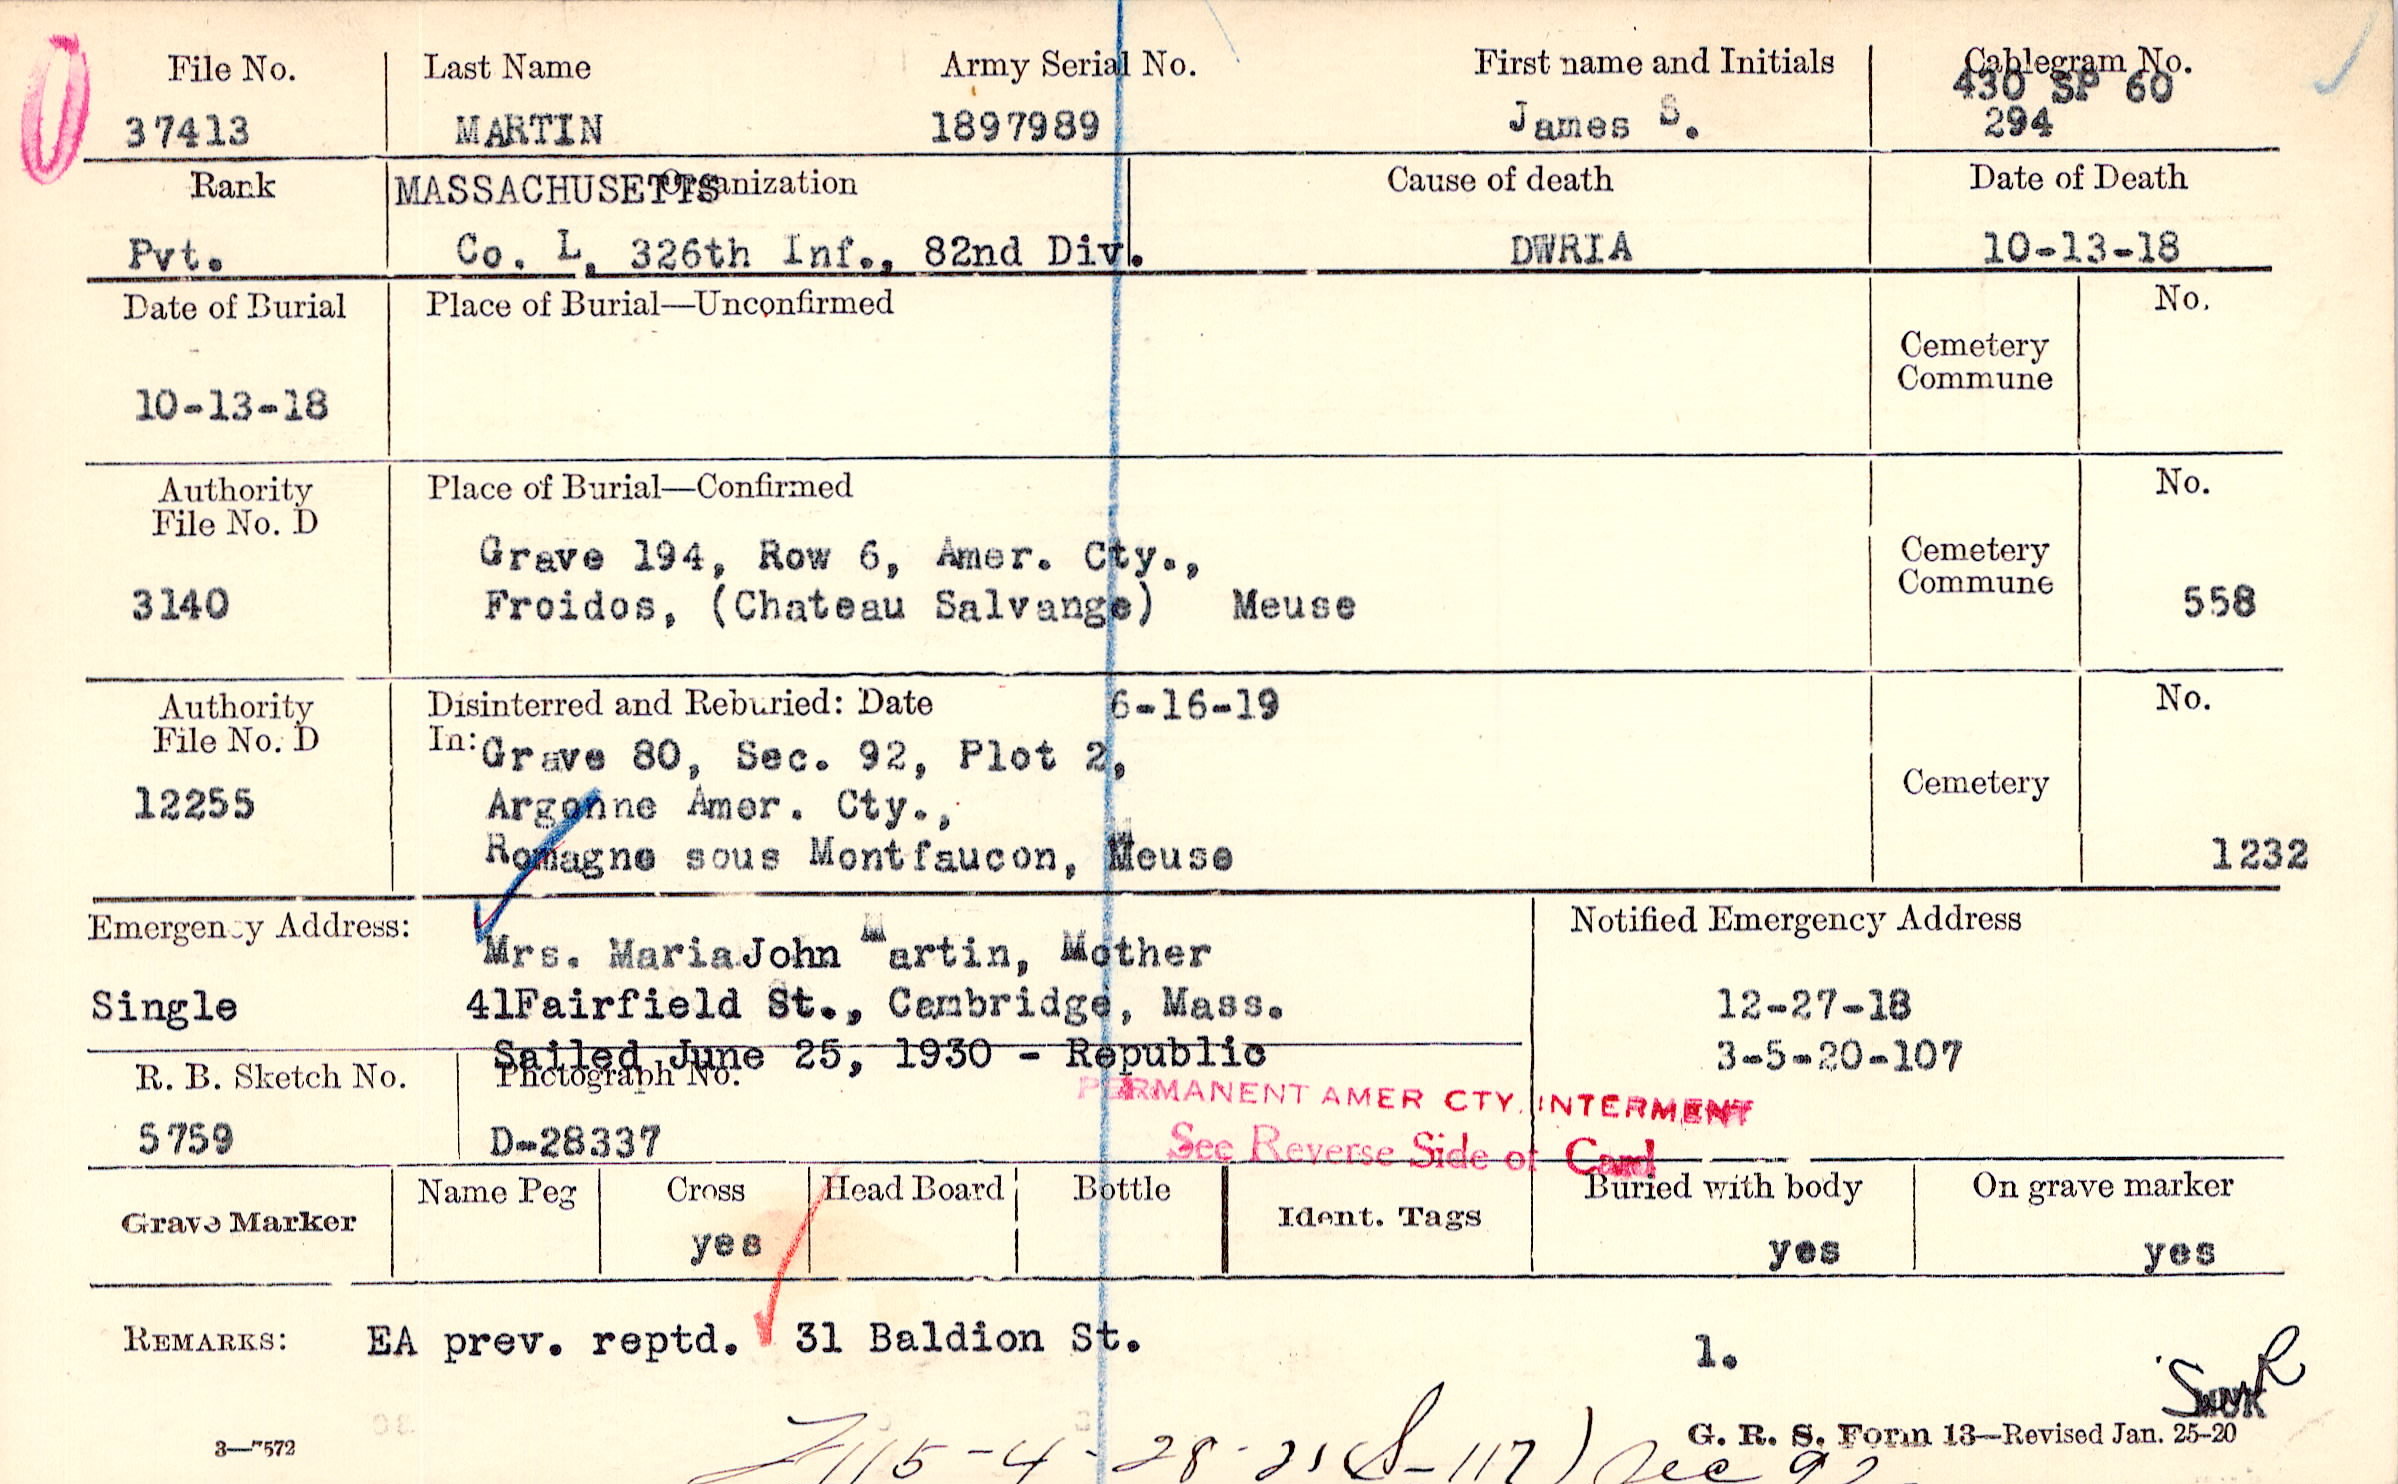 File No. Last Name Army Serial No. First name and Initials Cablegram No.
430 SP 60
37413 MARTIN 1897989 James S. 294
Rank MASSACHUSETTS Organization Cause of death Date of Death
Pvt. Co. L, 326th Inf., 82nd Div. DWRIA 10-13-18
Date of Burial Place of Burial—Unconfirmed No.
Cemetery
Commune
10-13-18
Authority Place of Burial—Confirmed No.
File No. D
Grave 194, Row 6, Amer. Cty., Cemetery
Commune
3140 Froidos, (Chateau Salvange) Meuse 558
Authority Disinterred and Reburied: Date 6-16-19 No.
File No. D In: Grave 80, Sec. 92, Plot 2,
Cemetery
12255 Argonne Amer. Cty.,
Romagne sous Montfaucon, Meuse 1232
Emergency Address: Notified Emergency Address
Mrs. Maria John Martin, Mother
Single 41 Fairfield St., Cambridge, Mass. 12-27-18
Sailed June 25, 1930 - Republic 3-5-20-107
R. B. Sketch No. Photograph No.
PERMANENT AMER CTY. INTERMENT
5759 D-28337 See Reverse Side of Card
Grave Marker Name Peg Cross Head Board Bottle Ident. Tags Buried with body On grave marker
yes yes yes
REMARKS: EA prev. reptd. 31 Baldion St. 1.
3—7572 G. R. S. Form 13—Revised Jan. 25-20